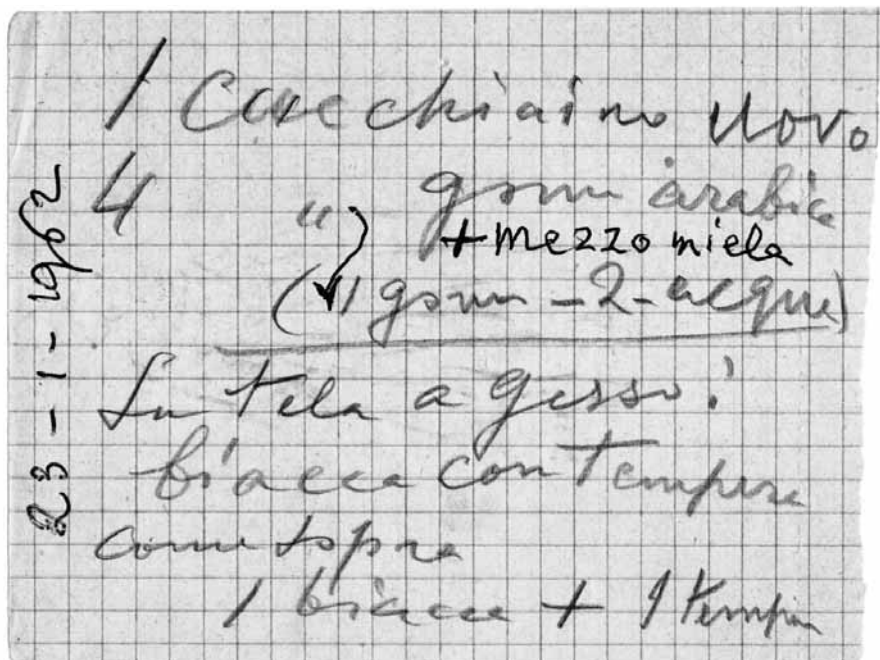 1 Cucchiaino Uovo
4 " gomm arabica
+ mezzo miele
(1 gomm - 2 - acqua)
Su tela a gesso:
biacca con tempera
come sopra
1 biacca + 1 tempera
23 - 1 - 1962